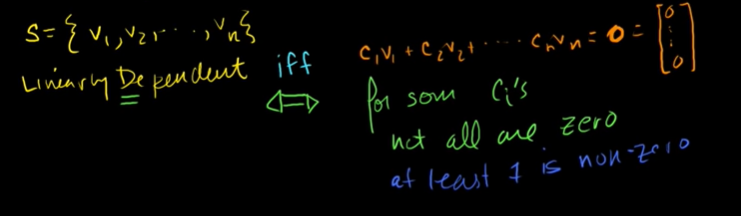 S = { v₁, v₂, ..., vₙ}
Linearly Dependent
iff
⟺
c₁v₁ + c₂v₂ + ..... cₙvₙ = 0 = [0 ⋮ 0]
for som cᵢ's
not all are zero
at least 1 is non-zero